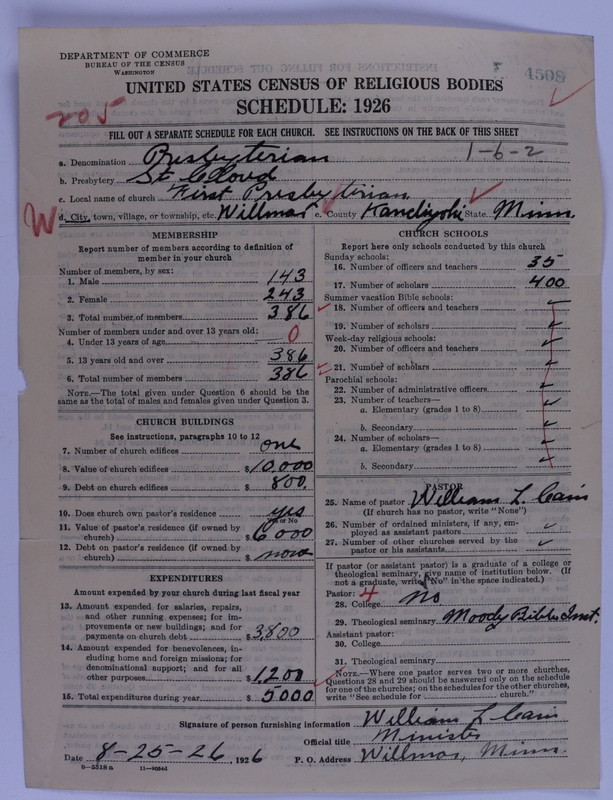 DEPARTMENT OF COMMERCE
BUREAU OF THE CENSUS
WASHINGTON
4508
UNITED STATES CENSUS OF RELIGIOUS BODIES
SCHEDULE: 1926
205
FILL OUT A SEPARATE SCHEDULE FOR EACH CHURCH. SEE INSTRUCTIONS ON THE BACK OF THIS SHEET
1-6-2
a. Denomination Presbyterian
b. Presbytery St Cloud
c. Local name of church First Presbyterian
W d. City, town, village, or township, etc. Willmar e. County Kandiyohi State Minn.
MEMBERSHIP
Report number of members according to definition of
member in your church
Number of members, by sex:
1. Male 143
2. Female 243
3. Total number of members 386
Number of members under and over 13 years old:
4. Under 13 years of age 0
5. 13 years old and over 386
6. Total number of members 386
NOTE.—The total given under Question 6 should be the
same as the total of males and females given under Question 3.
CHURCH BUILDINGS
See instructions, paragraphs 10 to 12
7. Number of church edifices one
8. Value of church edifices $10,000
9. Debt on church edifices $ 800.
10. Does church own pastor's residence? yes
Yes or No
11. Value of pastor's residence (if owned by
church) $6000
12. Debt on pastor's residence (if owned by
church) $ none
EXPENDITURES
Amount expended by your church during last fiscal year
13. Amount expended for salaries, repairs,
and other running expenses; for im-
provements or new buildings; and for
payments on church debt $3,800
14. Amount expended for benevolences, in-
cluding home and foreign missions; for
denominational support; and for all
other purposes $1200
15. Total expenditures during year $5000
CHURCH SCHOOLS
Report here only schools conducted by this church
Sunday schools:
16. Number of officers and teachers 35
17. Number of scholars 400
Summer vacation Bible schools:
18. Number of officers and teachers
19. Number of scholars
Week-day religious schools:
20. Number of officers and teachers
21. Number of scholars
Parochial schools:
22. Number of administrative officers
23. Number of teachers—
a. Elementary (grades 1 to 8)
b. Secondary
24. Number of scholars—
a. Elementary (grades 1 to 8)
b. Secondary
PASTOR
25. Name of pastor William L. Cain
(If church has no pastor, write "None")
26. Number of ordained ministers, if any, em-
ployed as assistant pastors
27. Number of other churches served by the
pastor or his assistants
If pastor (or assistant pastor) is a graduate of a college or
theological seminary, give name of institution below. (If
not a graduate, write "No" in the space indicated.)
Pastor: 4
28. College no
29. Theological seminary Moody Bible Inst.
Assistant pastor:
30. College
31. Theological seminary
NOTE.—Where one pastor serves two or more churches,
Questions 28 and 29 should be answered only on the schedule
for one of the churches; on the schedules for the other churches,
write "See schedule for church."
Signature of person furnishing information William L Cain
Official title Minister
Date 8-25-26, 1926 P. O. Address Willmar, Minn.
8—5518a 11—9034d